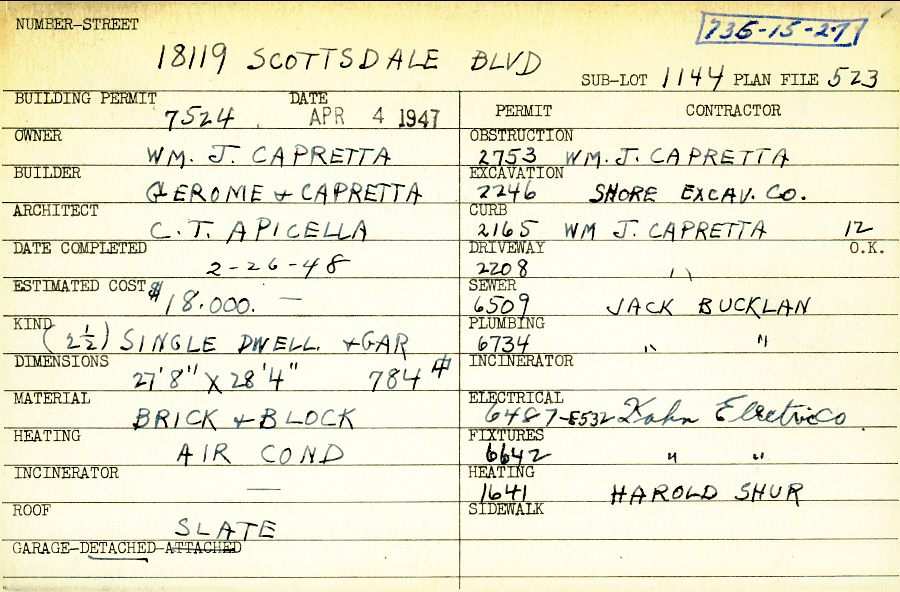 NUMBER-STREET
736-15-27
18119 SCOTTSDALE BLVD
SUB-LOT 1144 PLAN FILE 523
BUILDING PERMIT DATE
7524 APR 4 1947
OWNER
WM. J. CAPRETTA
BUILDER
GEROME & CAPRETTA
ARCHITECT
C. T. APICELLA
DATE COMPLETED
2-26-48
ESTIMATED COST $18.000. —
KIND
(2½) SINGLE DWELL. & GAR
DIMENSIONS
27'8" X 28'4" 784 #
MATERIAL
BRICK & BLOCK
HEATING
AIR COND
INCINERATOR
—
ROOF
SLATE
GARAGE-DETACHED-ATTACHED
PERMIT CONTRACTOR
OBSTRUCTION
2753 WM. J. CAPRETTA
EXCAVATION
2246 SHORE EXCAV. CO.
CURB
2165 WM J. CAPRETTA 12
DRIVEWAY O.K.
2208 " 
SEWER
6509 JACK BUCKLAN
PLUMBING
6734 " "
INCINERATOR
ELECTRICAL
6487-8532 Kahn Electric Co
FIXTURES
6642 " "
HEATING
1641 HAROLD SHUR
SIDEWALK